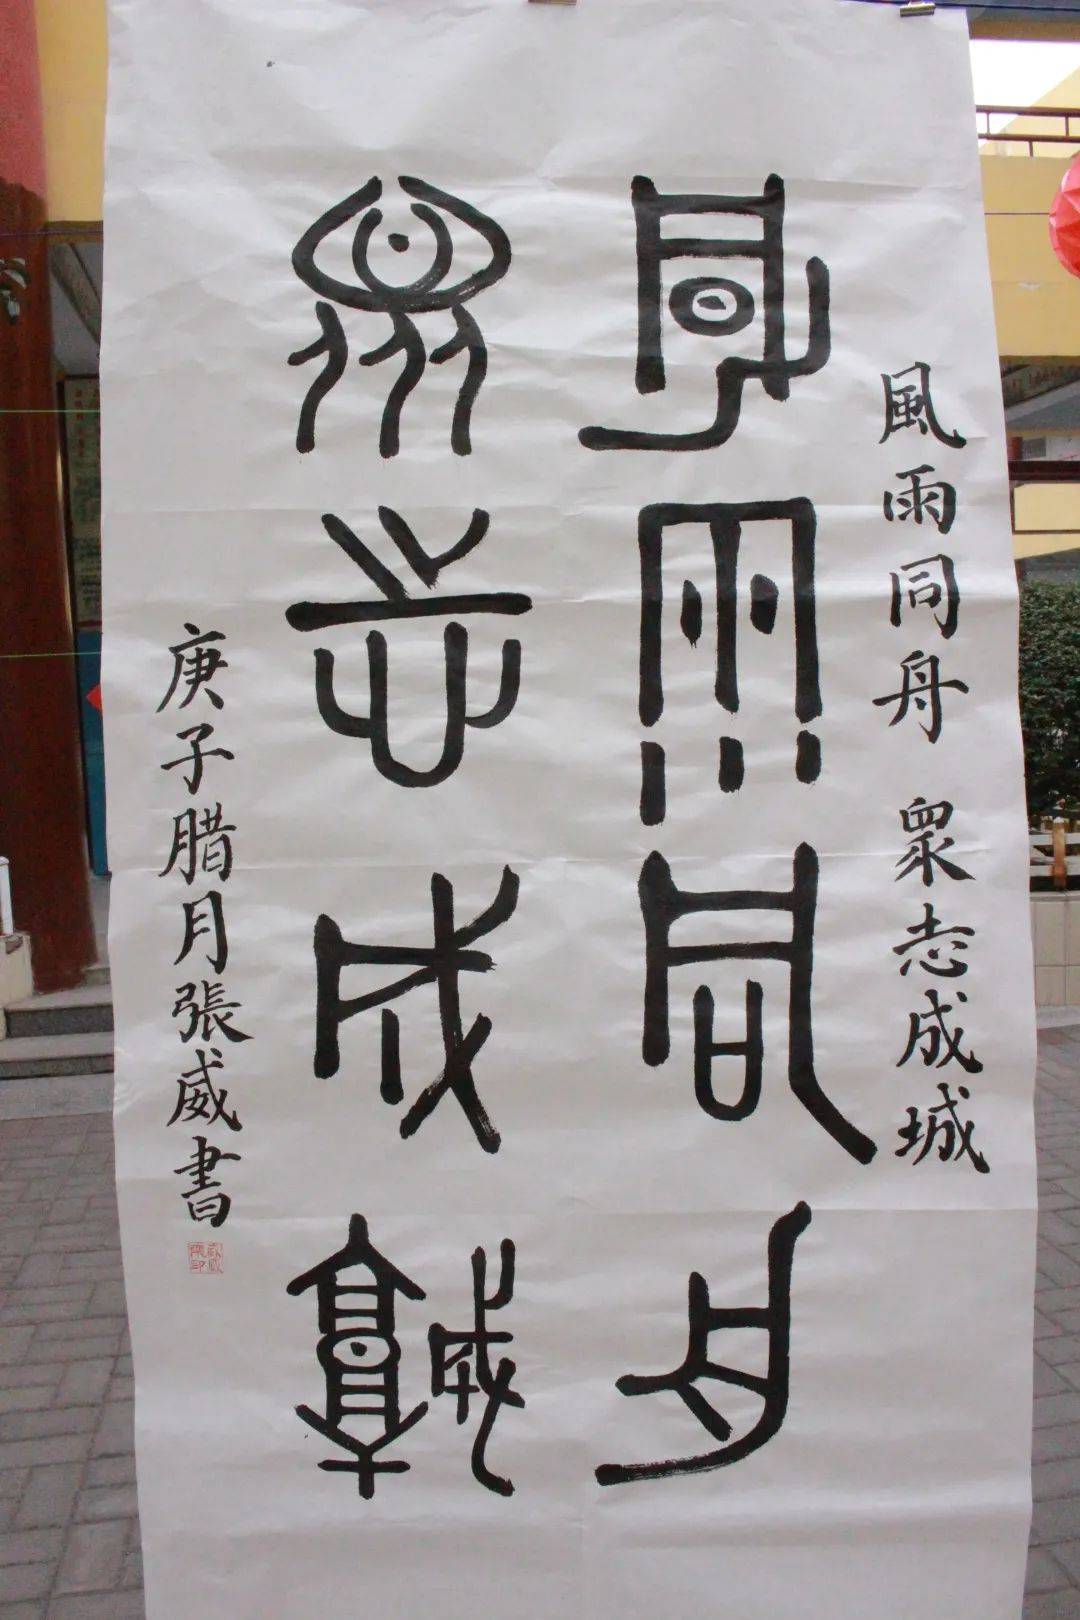 風雨同舟 眾志成城
風雨同舟
眾志成城
庚子腊月張威書